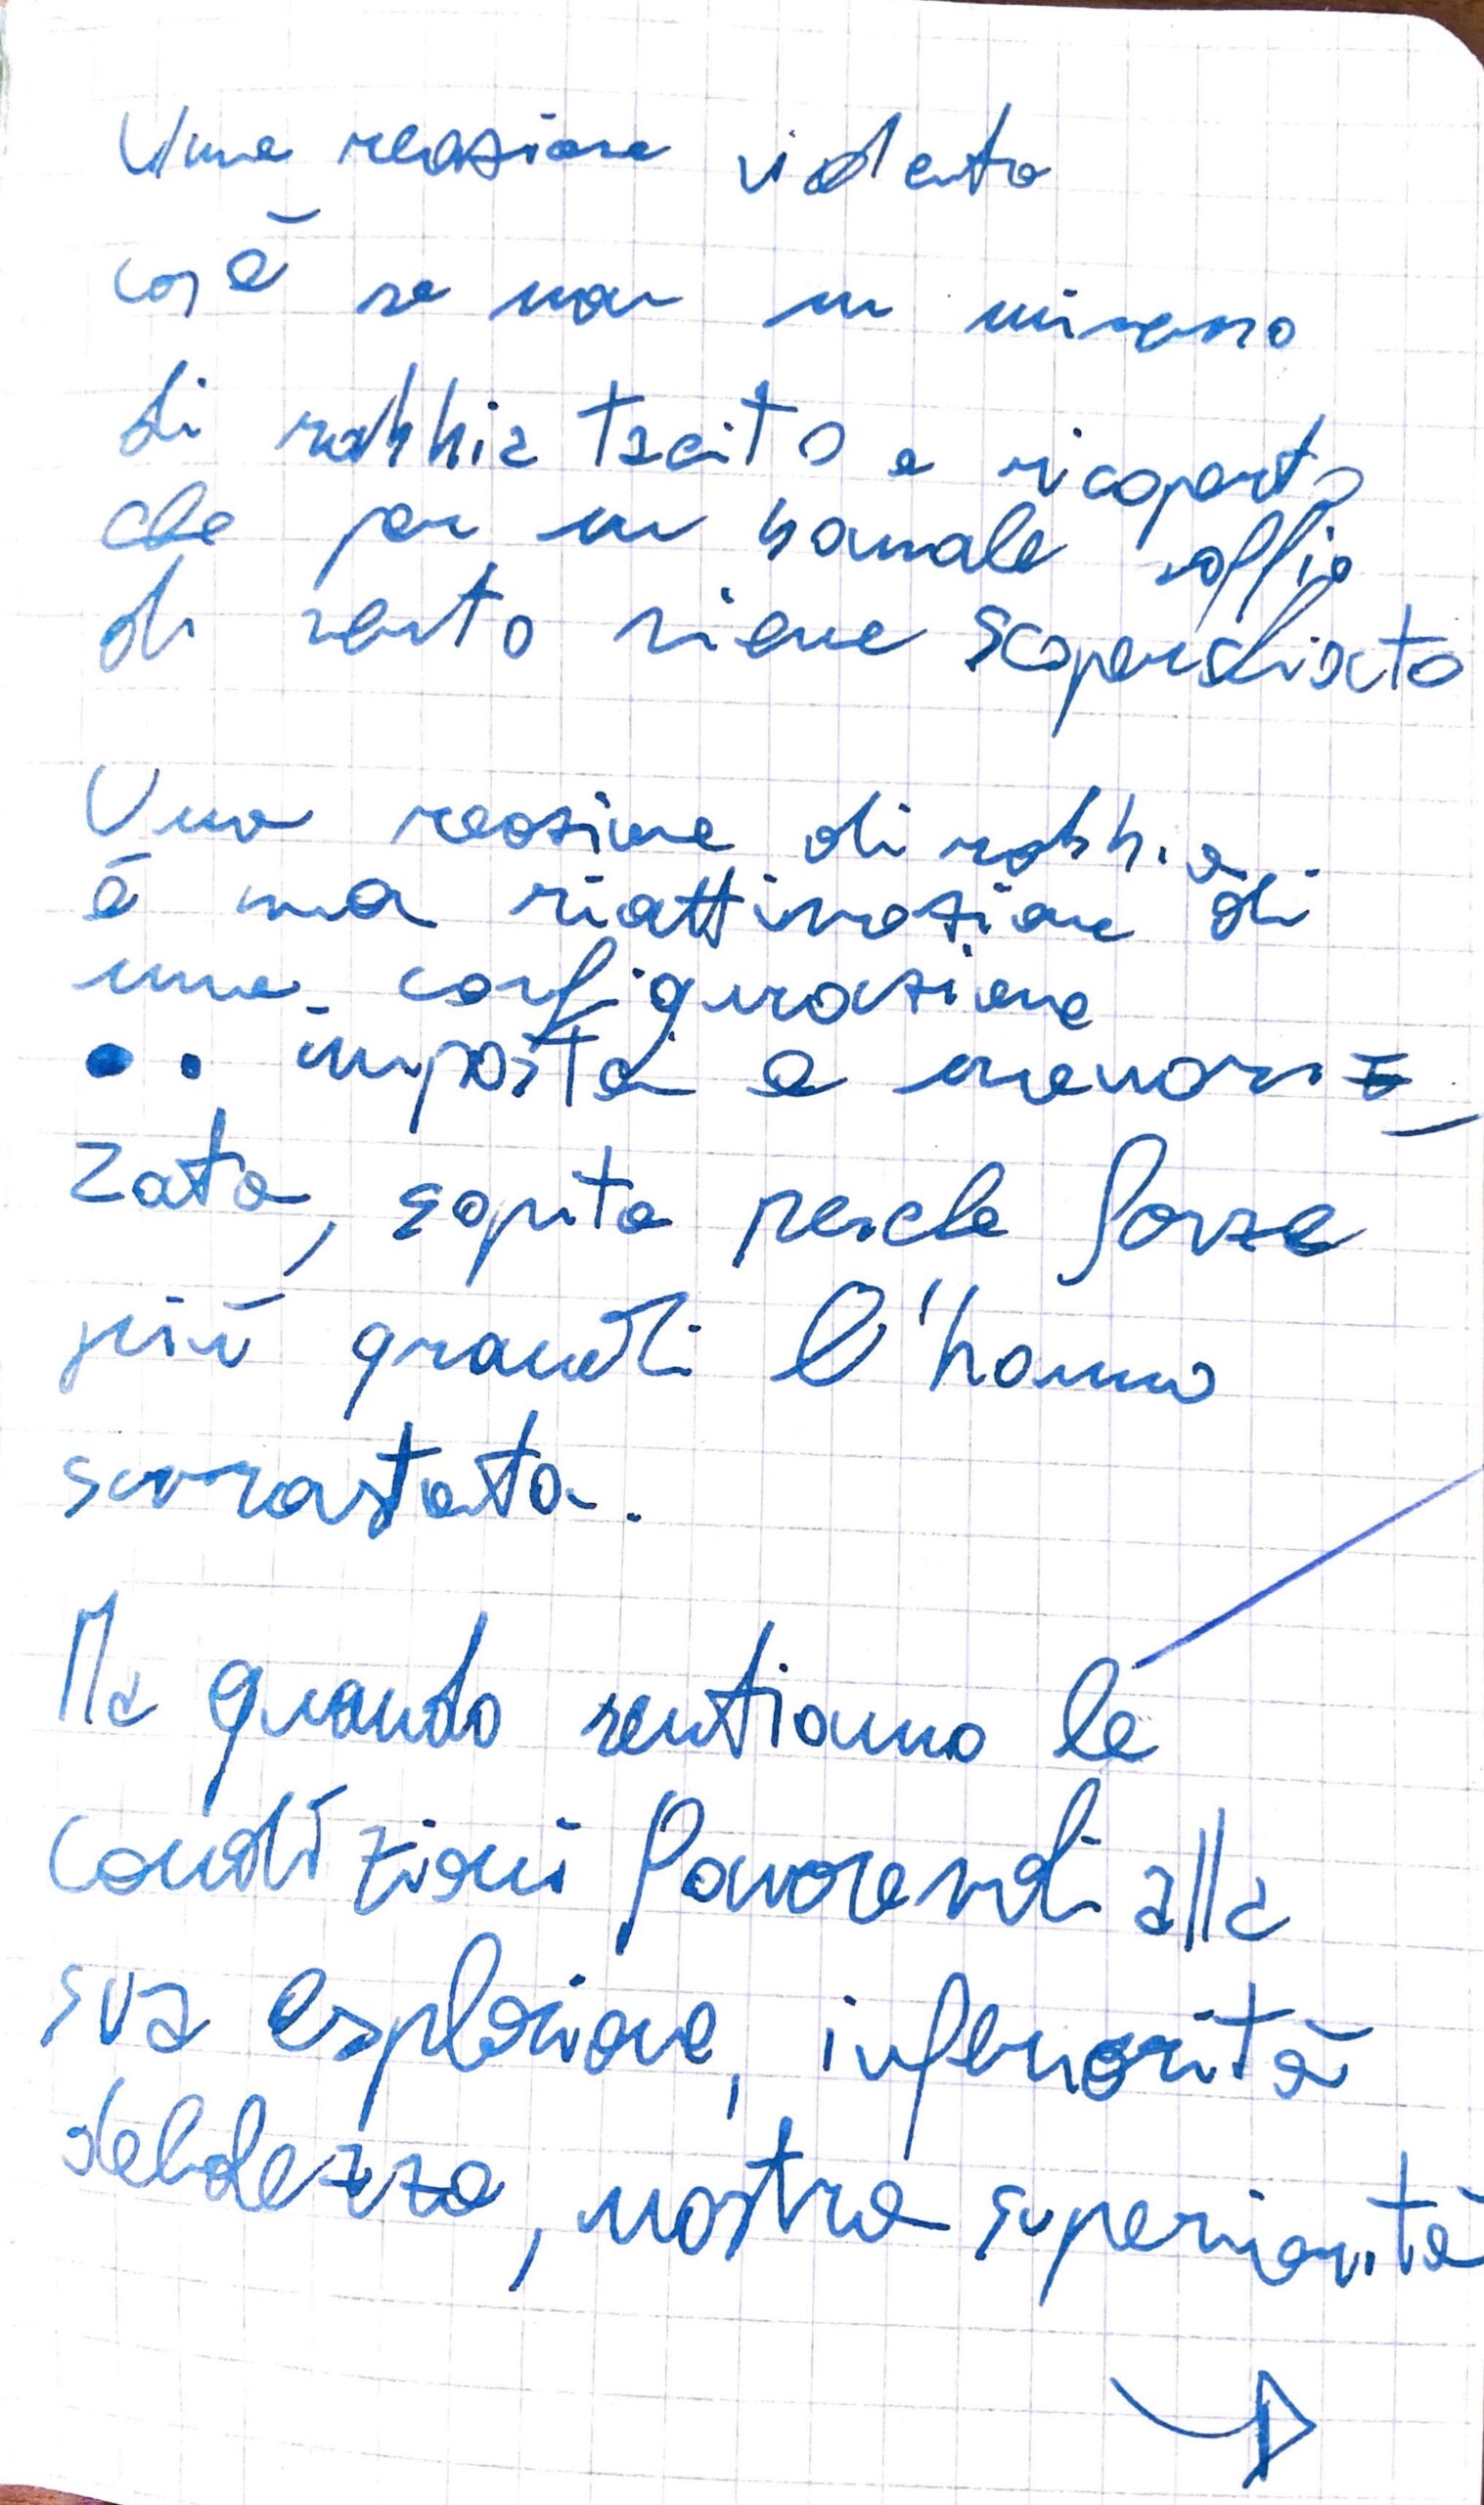 Una reazione violenta
cos è se non un
di rabbia tacito e ricoperto
che per un banale soffio
di vento viene scoperchiato
Una reazione di rabbia
è una riattivazione di
una configurazione
imposta e memoriz
zata, sopita perche forze
più grandi l'hanno
sovrastata.
Ma quando sentiamo le
condizioni favorevoli alla
sua esplosione, inferiorità
debolezza, nostra superiorità